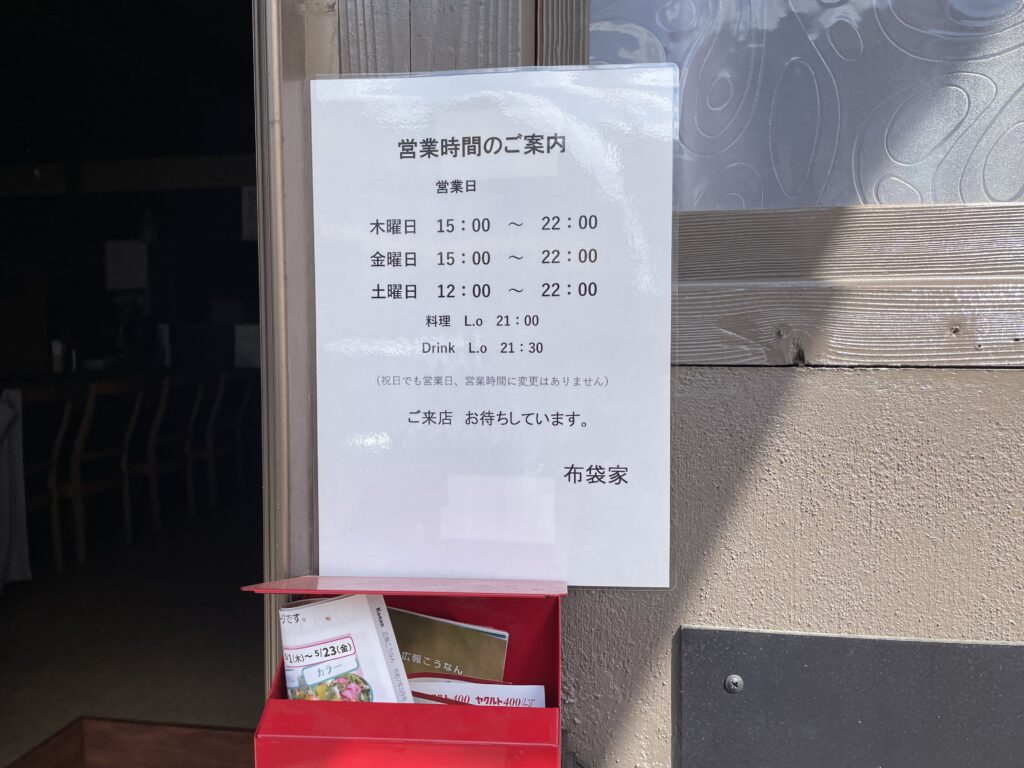 営業時間のご案内
営業日
木曜日 15：00 ～ 22：00
金曜日 15：00 ～ 22：00
土曜日 12：00 ～ 22：00
料理 L.o 21：00
Drink L.o 21：30
（祝日でも営業日、営業時間に変更はありません）
ご来店 お待ちしています。
布袋家
です。
1(木)～5/23(金)
カラー
Konan
広報こうなん
広報こうなん
ヤクルト400